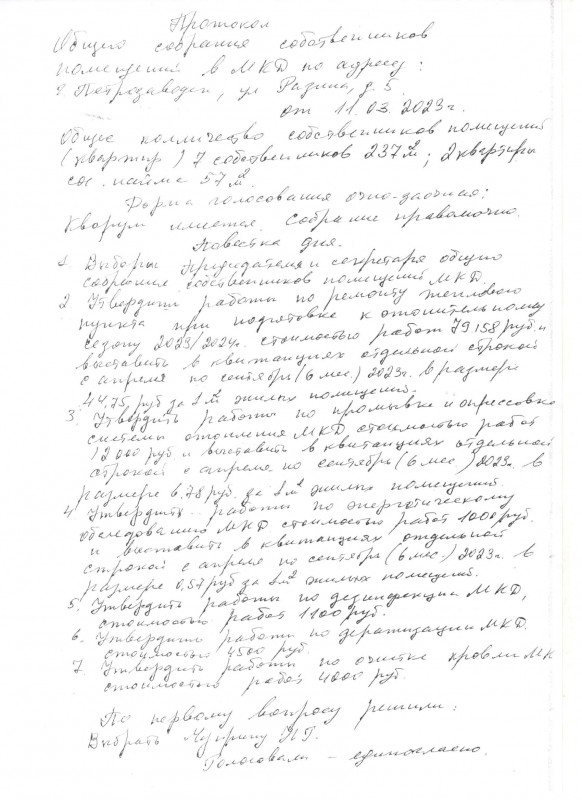 Протокол
Общего собрания собственников
помещений в МКД по адресу:
г. Петрозаводск, ул Разина, д. 5.
от 11.03.2023г.
Общее колличество собственников помещений
(квартир) 7 собственников 237 м²; 2 квартиры
соц. найма 57 м².
Форма голосования очно-заочная:
Кворум имеется. Собрание правомочно.
Повестка дня.
1. Выборы Председателя и секретаря общего
собрания собственников помещений МКД.
2 Утвердить работы по ремонту теплового
пункта при подготовке к отопительному
сезону 2023/2024г. стоимостью работ 79158 руб. и
выставить в квитанциях отдельной строкой
с апреля по сентябрь (6 мес.) 2023г. в размере
44,75 руб за 1 м² жилых помещений.
3. Утвердить работы по промывке и опрессовке
системы отопления МКД стоимостью работ
12000 руб и выставить в квитанциях отдельной
строкой с апреля по сентябрь (6 мес.) 2023г. в
размере 6,78 руб. за 1 м² жилых помещений.
4 Утвердить работы по энергетическому
обследованию МКД стоимостью работ 1000 руб.
и выставить в квитанциях отдельной
строкой с апреля по сентябрь (6 мес.) 2023г. в
размере 0,57 руб за 1 м² жилых помещений.
5. Утвердить работы по дезинфекции МКД,
стоимостью работ 1100 руб.
6. Утвердить работы по дератизации МКД.
стоимостью 4500 руб.
7. Утвердить работы по очистке кровли МК
стоимостью работ 4000 руб.
По первому вопросу решили:
Выбрать Н.Г.
Голосовали - единогласно.